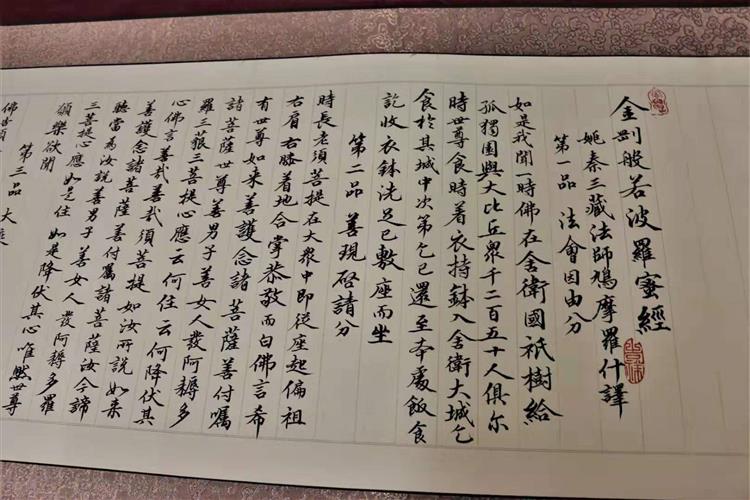 金剛般若波羅蜜經
姚秦三藏法師鳩摩羅什譯
第一品 法會因由分
如是我聞一時佛在舍衛國祇樹給
孤獨園與大比丘眾千二百五十人俱尔
時世尊食時着衣持鉢入舍衛大城乞
食於其城中次第乞已還至本處飯食
訖收衣鉢洗足已敷座而坐
第二品 善現啓請分
時長老須菩提在大眾中即從座起偏袒
右肩右膝着地合掌恭敬而白佛言希
有世尊如来善護念諸菩薩善付囑
諸菩薩世尊善男子善女人發阿耨多
羅三藐三菩提心應云何住云何降伏其
心佛言善哉善哉須菩提如汝所說如来
善護念諸菩薩善付囑諸菩薩汝今諦
聽當為汝說善男子善女人發阿耨多羅
三菩提心應如是住如是降伏其心唯然世尊
願樂欲聞
第三品 大
佛告須